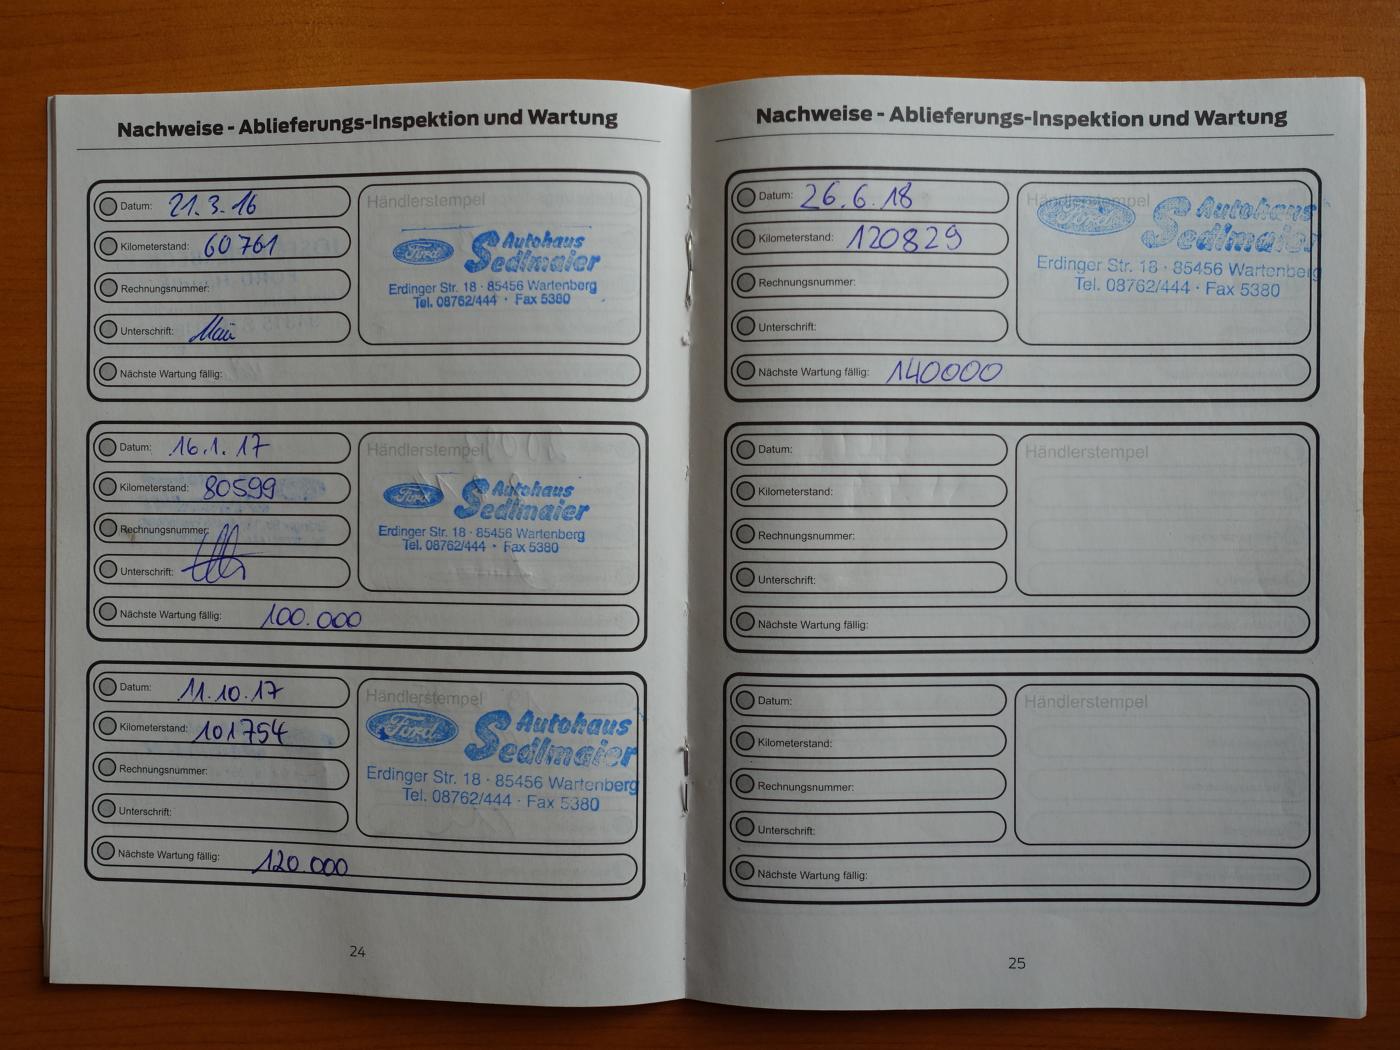 Nachweise - Ablieferungs-Inspektion und Wartung
Datum: 21.3.16
Kilometerstand: 60761
Rechnungsnummer:
Unterschrift:
Nächste Wartung fällig:
Händlerstempel
Ford Autohaus
Sedlmaier
Erdinger Str. 18 · 85456 Wartenberg
Tel. 08762/444 · Fax 5380
Datum: 16.1.17
Kilometerstand: 80599
Rechnungsnummer:
Unterschrift:
Nächste Wartung fällig: 100.000
Händlerstempel
Ford Autohaus
Sedlmaier
Erdinger Str. 18 · 85456 Wartenberg
Tel. 08762/444 · Fax 5380
Datum: 11.10.17
Kilometerstand: 101754
Rechnungsnummer:
Unterschrift:
Nächste Wartung fällig: 120.000
Händlerstempel
Ford Autohaus
Sedlmaier
Erdinger Str. 18 · 85456 Wartenberg
Tel. 08762/444 · Fax 5380
24
Nachweise - Ablieferungs-Inspektion und Wartung
Datum: 26.6.18
Kilometerstand: 120829
Rechnungsnummer:
Unterschrift:
Nächste Wartung fällig: 140000
Händlerstempel
Ford Autohaus
Sedlmaier
Erdinger Str. 18 · 85456 Wartenberg
Tel. 08762/444 · Fax 5380
Datum:
Kilometerstand:
Rechnungsnummer:
Unterschrift:
Nächste Wartung fällig:
Händlerstempel
Datum:
Kilometerstand:
Rechnungsnummer:
Unterschrift:
Nächste Wartung fällig:
Händlerstempel
25